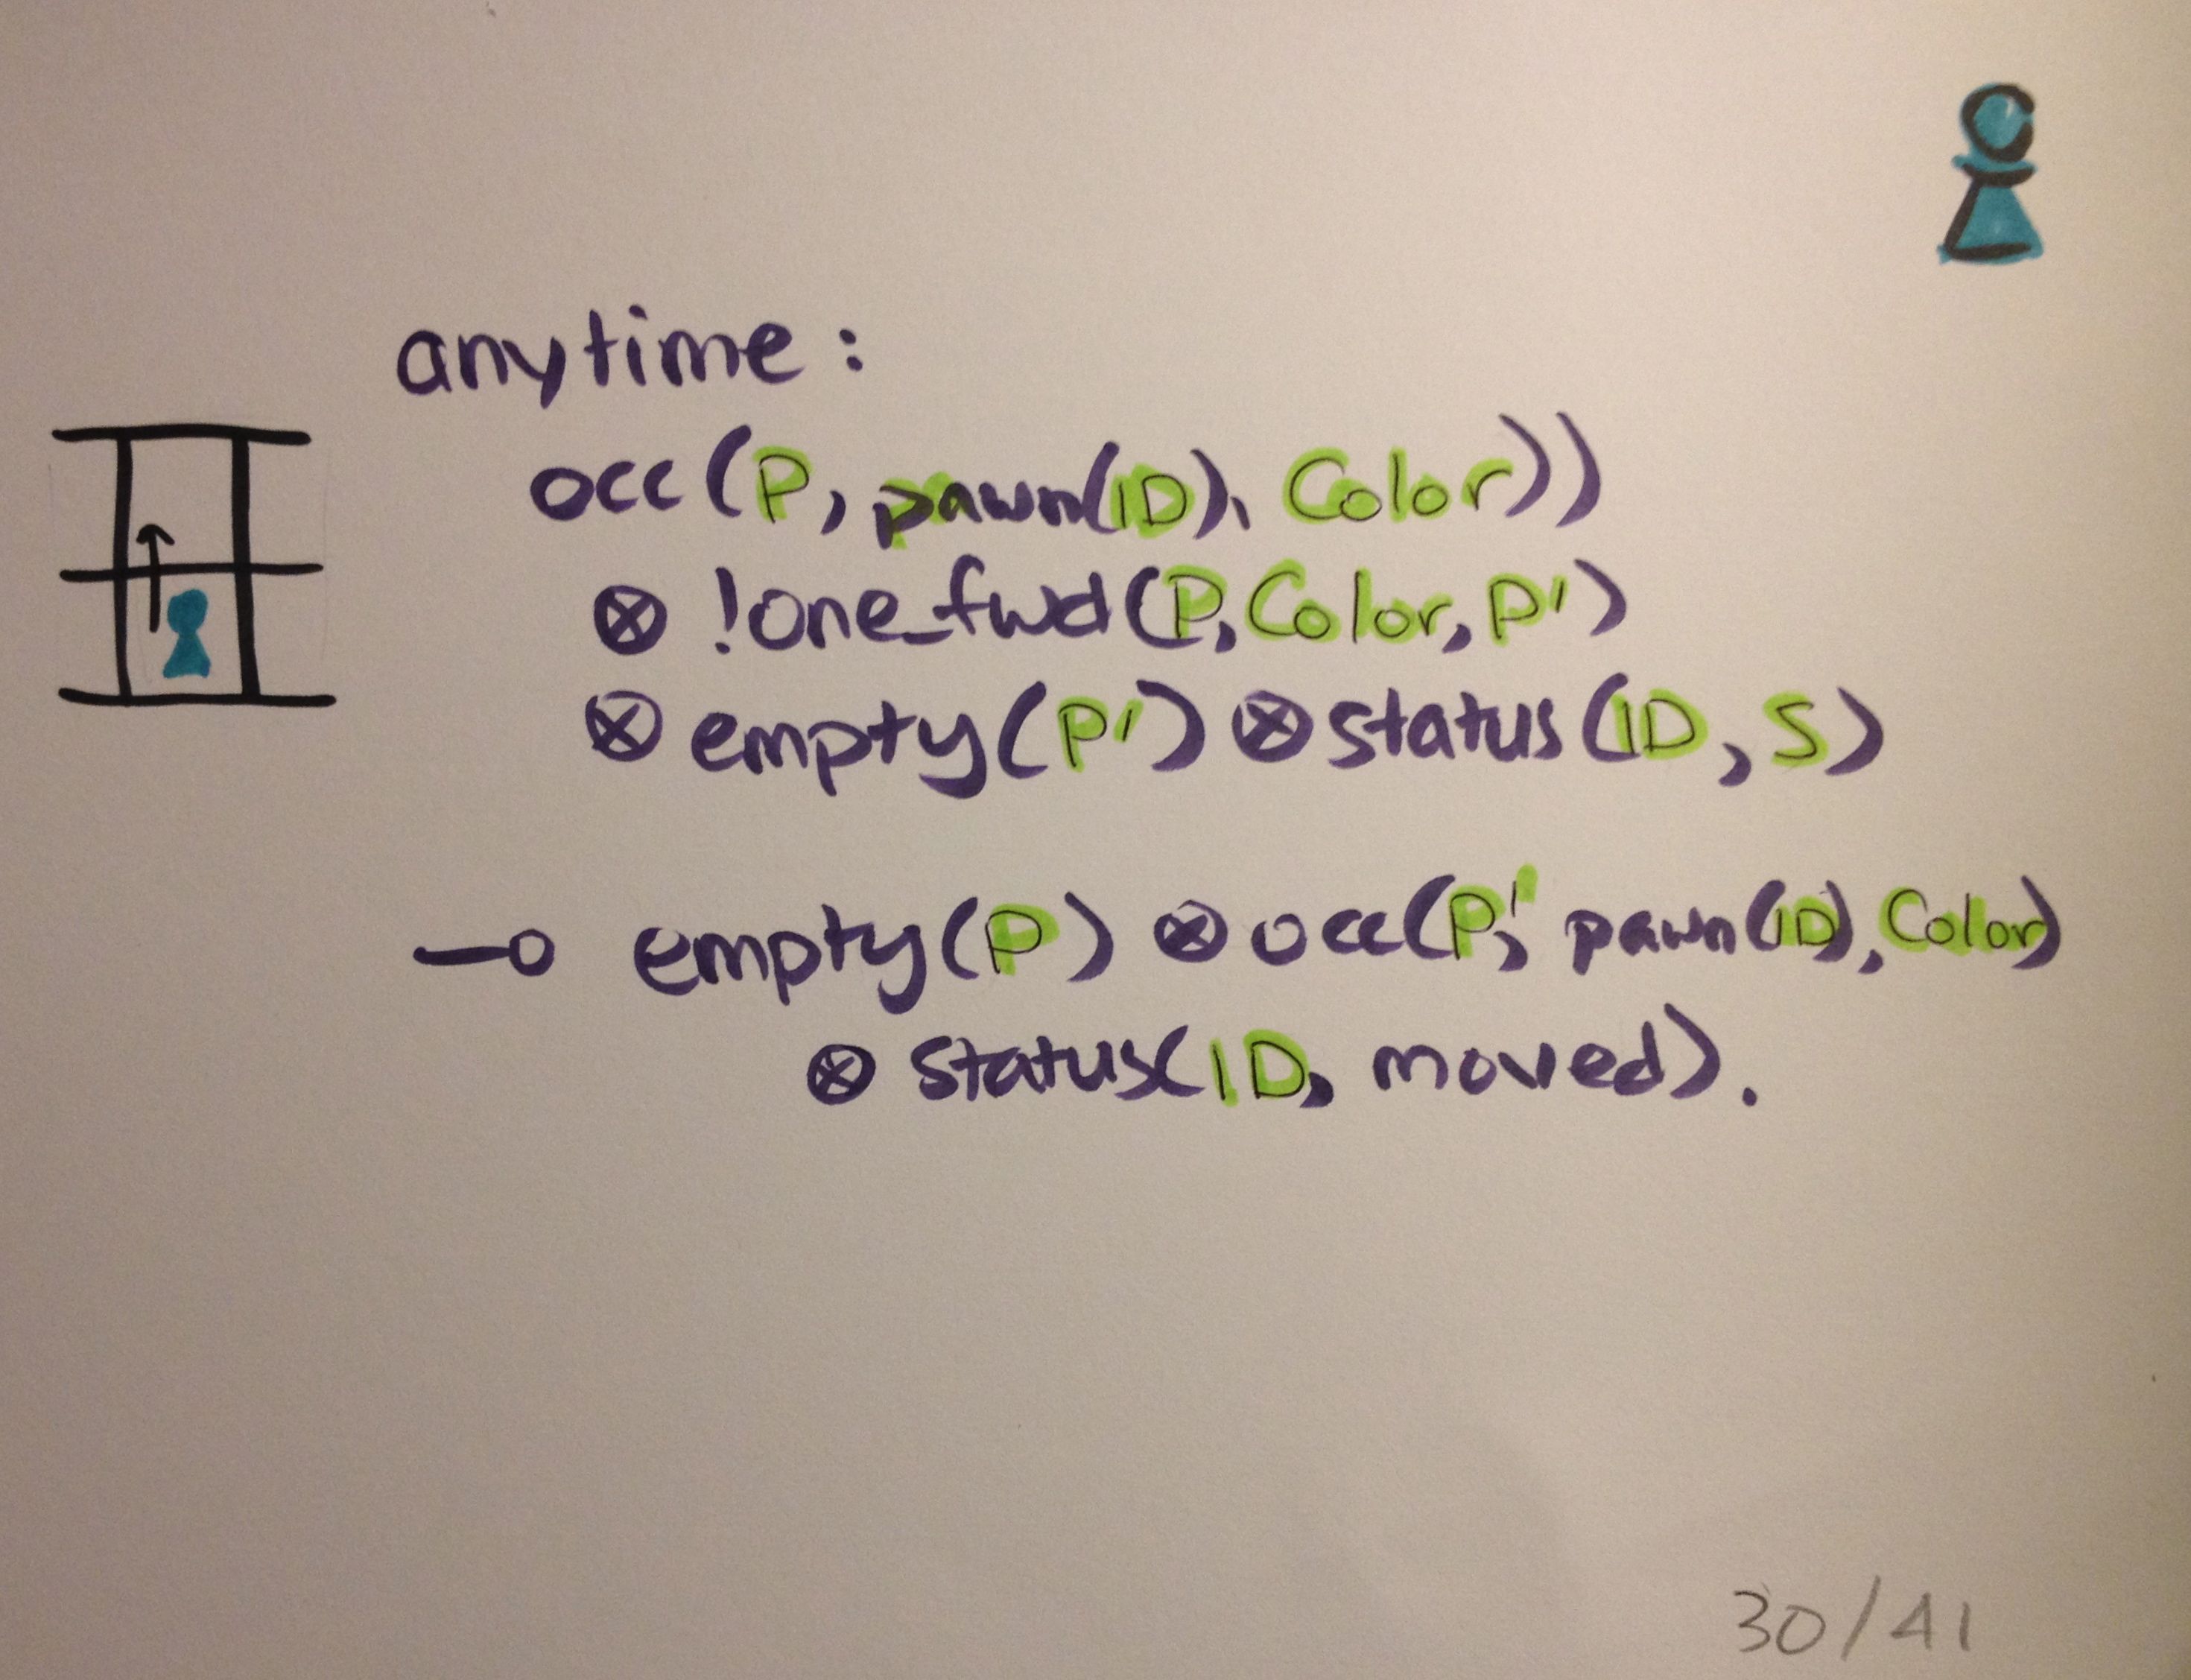 anytime:
occ(P, pawn(ID), Color))
⊗ !one_fwd(P, Color, P')
⊗ empty(P') ⊗ status(ID, S)
⊸ empty(P) ⊗ occ(P', pawn(ID), Color)
⊗ status(ID, moved).
30/41